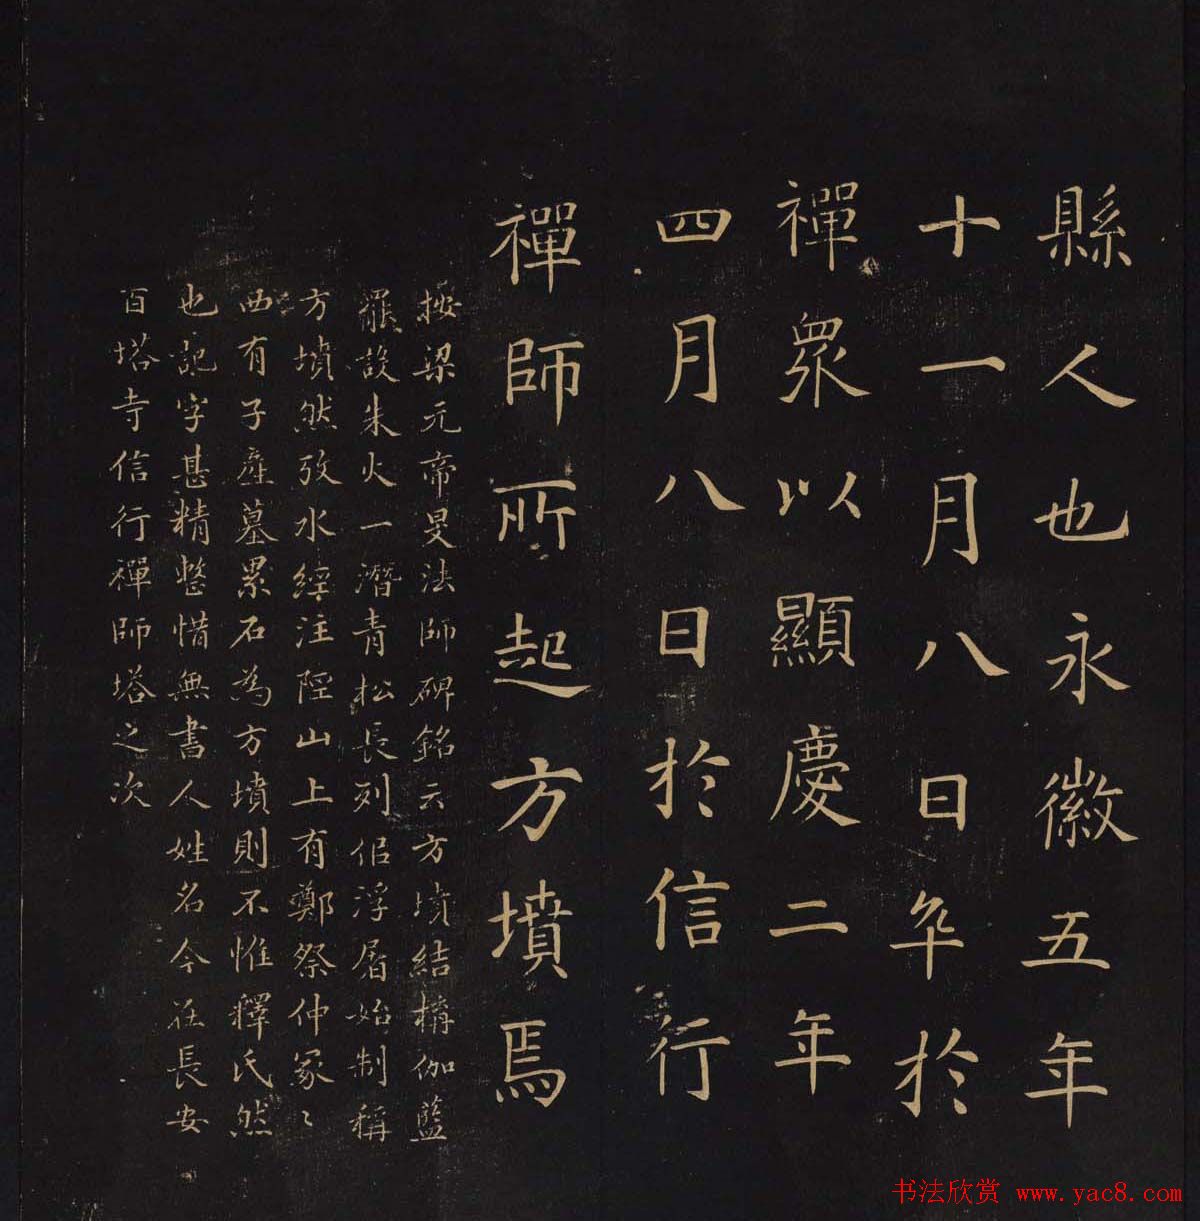 縣人也永徽五年
十一月八日卒於
禪眾以顯慶二年
四月八日於信行
禪師所起方墳焉
按梁元帝旻法師碑銘云方墳結構伽藍
羅設朱火一潛青松長列侣浮屠始制稱
方墳然攷水經注陘山上有鄭祭仲冢〻
西有子產墓累石為方墳則不惟釋氏然
也記字甚精整惜無書人姓名今在長安
百塔寺信行禪師塔之次
书法欣赏 www.yac8.com